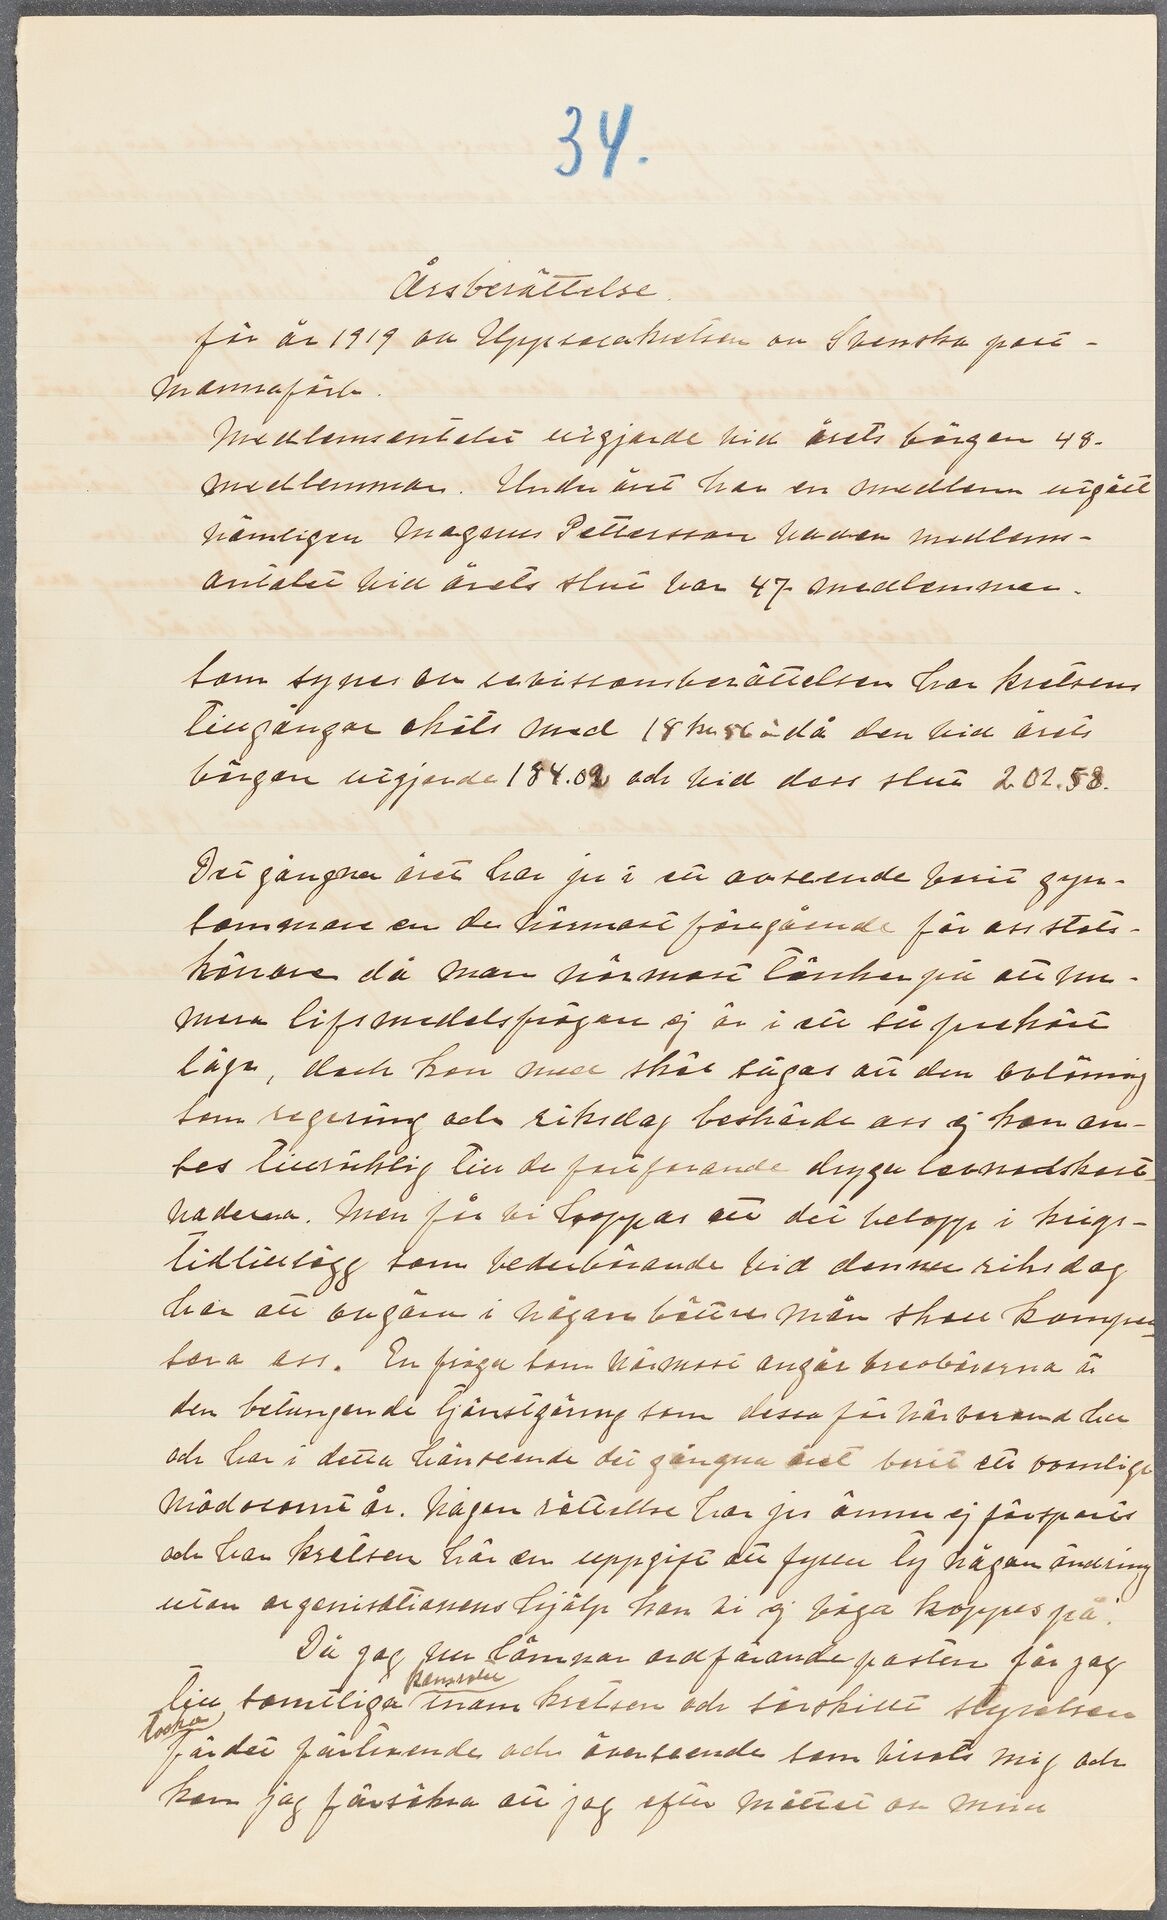 34.
Årsberättelse.
för år 1919 av Uppsalakretsen av Svenska post-
mannaförb.
Medlemsantalet utgjorde vid årets början 48-
medlemmar. Under året har en medlem utgått
nämligen Magnus Pettersson varav medlems-
antalet vid årets slut var 47 medlemmar.
Som synes av revissionsberättelsen har kretsens
tillgångar ökats med 18 kr 56 ö då den vid årets
början utgjorde 184.02 och vid dess slut 202.58.
Det gångna året har ju i ett avseende varit gyn-
sammare en de närmast föregående för oss stats-
tänare då man närmast tänker på att nu-
mera lifsmedelsfrågan ej är i ett så prekärt
läge, dock kan med skäl sägas att den avlöning
som regering och riksdag beskärde oss ej kan an-
ses tillräklig till de fortfarande dryga levnadskost-
naderna. Men får vi hoppas att det belopp i krigs-
tidtillägg som vederbörande vid denna riksdag
har att avgöra i någon bättre mån skall kompen-
sera oss. En fråga som närmast angår brevbärarna är
den betungande tjänstgöring som dessa för närvarand ha
och har i detta hänseende det gångna året varit ett ovanligt
mödosamt år. Någon rättelse har ju ännu ej försports
och har kretsen här en uppgift att fylla ty någon ändring
utan organisationens hjälp kan vi ej våga hoppas på.
Då jag nu lämnar ordförandeposten får jag
till samtliga inom kretsen och särskilt styrelsen
tacka
för det förtroende och överseende som visats mig och
kan jag försäkra att jag efter måttet av mina